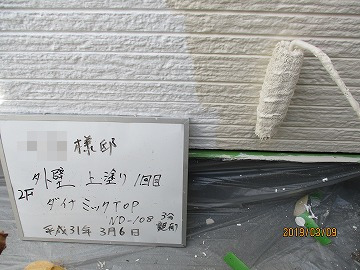 様邸
外壁 上塗り 1回目
2F
ダイナミックTOP
ND-108 3分艶有
平成31年 3月6日
2019/03/09